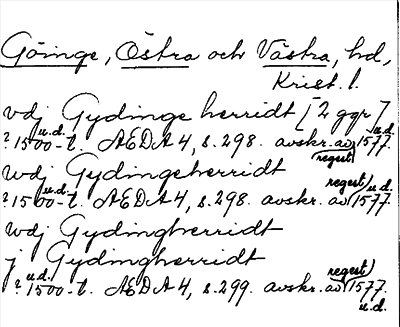 Göinge, Östra och Västra, hd,
Krist. l.
vdj Gydinge herridt [2 ggr]
? 1500-t. u.d. AEDA 4, s. 298. avskr. av regest) 1577. u.d.
wdj Gydingeherridt
? 1500-t. u.d. AEDA 4, s. 298. avskr. av regest) 1577. u.d.
wdj Gydingherridt
j Gydingherridt
? 1500-t. u.d. AEDA 4, s. 299. avskr. av regest) 1577. u.d.